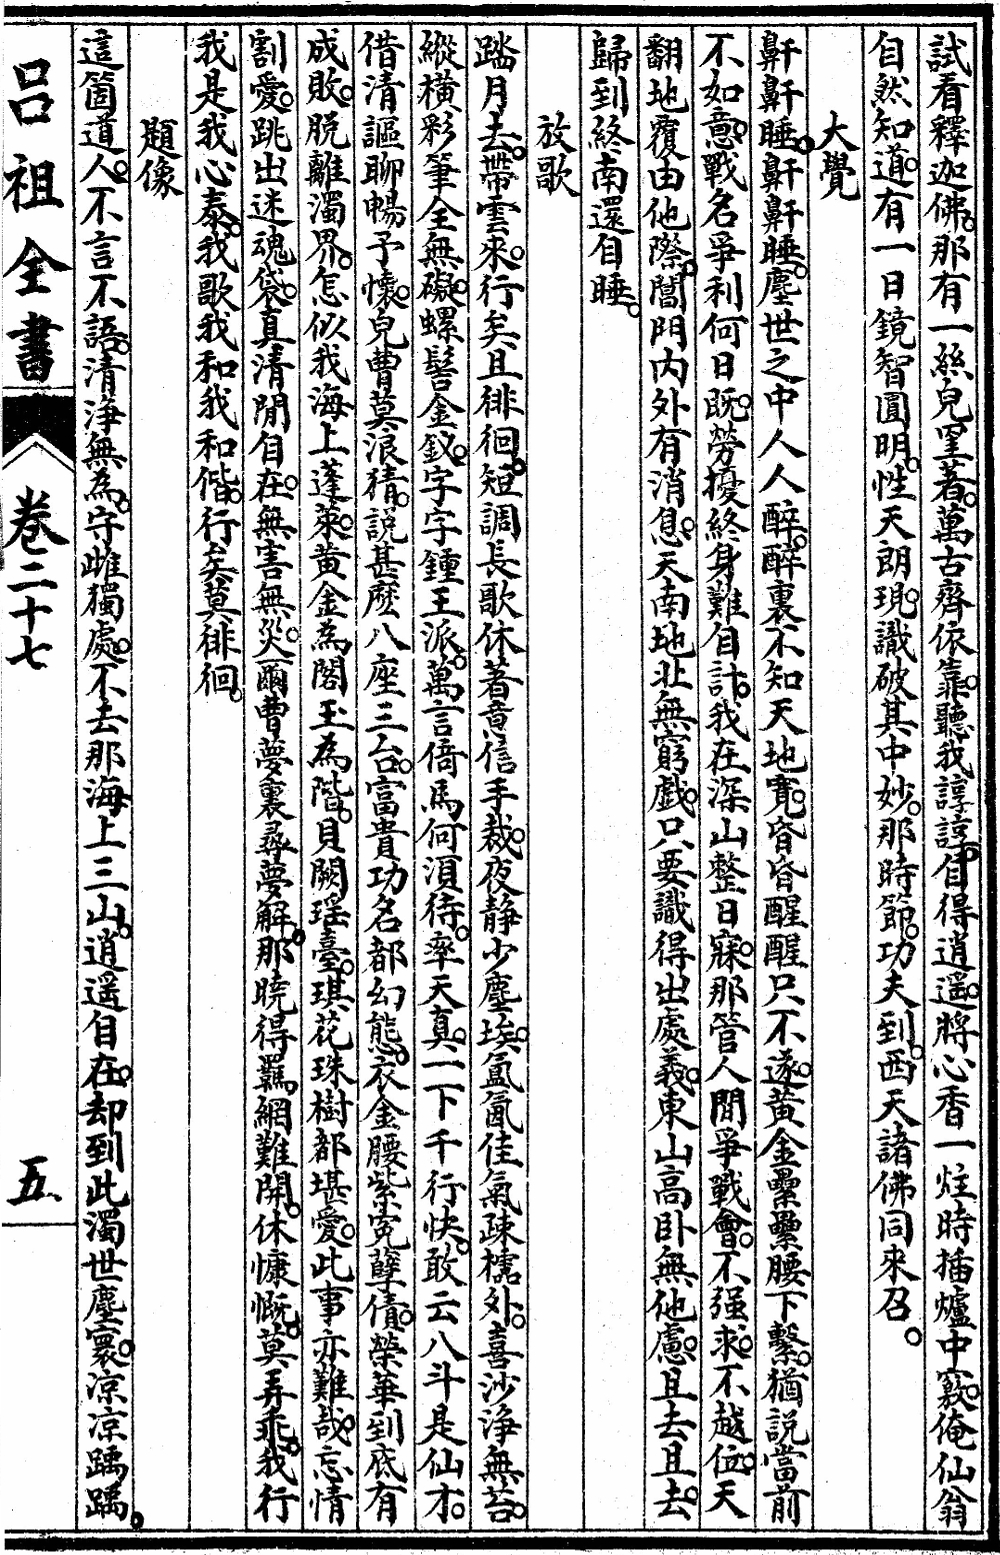 試看釋迦佛。那有一絲兒罣著。萬古齊依靠。聽我諄諄。自得逍遥。將心香一炷時插爐中竅。俺仙翁
自然知道。有一日鏡智圓明。性天朗現。識破其中妙。那時節。功夫到。西天諸佛同來召。
大覺
鼾鼾睡。鼾鼾睡。塵世之中人人醉。醉裏不知天地寛。昏昏醒醒只不遂。黃金纍纍腰下繫。猶說當前
不如意。戰名爭利何日既。勞擾終身難自計。我在深山整日寐。那管人間爭戰會。不强求。不越位。天
翻地覆由他際。闇門內外有消息。天南地北無窮戲。只要識得出處義。東山高卧無他慮。且去且去。
歸到終南還自睡。
放歌
踏月去。帶雲來。行矣且徘徊。短調長歌休著意。信手裁。夜靜少塵埃。氤氳佳氣疎櫺外。喜沙淨無苔。
縱橫彩筆全無礙。螺髻金釵。字字鍾王派。萬言倚馬何須待。率天真。一下千行快。敢云八斗是仙才。
借清謳聊暢予懷。兒曹莫浪猜。說甚麽八座三台。富貴功名都幻態。衣金腰紫寃孽債。榮華到底有
成敗。脫離濁界。怎似我海上蓬萊。黃金為閣玉為階。貝闕瑶臺。琪花珠樹都堪愛。此事亦難哉。忘情
割愛。跳出迷魂袋。真清閒自在。無害無災。爾曹夢裏尋夢解。那曉得羈網難開。休慷慨。莫弄乖。我行
我是我心泰。我歌我和我和偕。行矣莫徘徊。
題像
這箇道人。不言不語。清淨無為。守雌獨處。不去那海上三山。逍遥自在。却到此濁世塵寰。凉凉踽踽。
呂祖全書
卷二十七
五